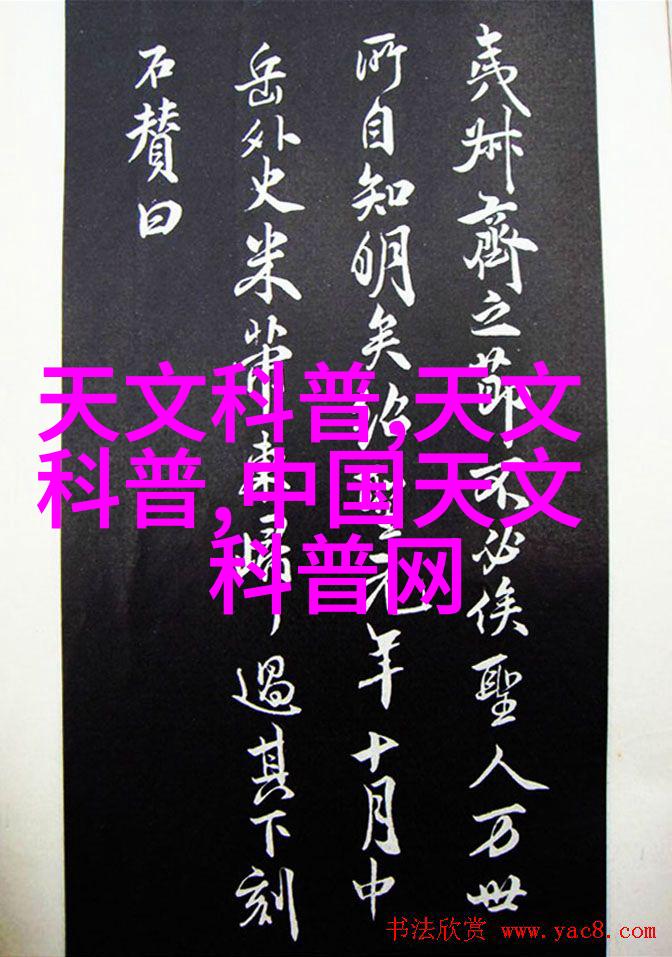 夷叔齊之節不必俟聖人万世
所自知明矣紹聖元年十月中
岳外史米芾東歸過其下刻
石賛曰
天文科普,天文
科普,中国天文
科普网
书法欣赏 www.yac8.com